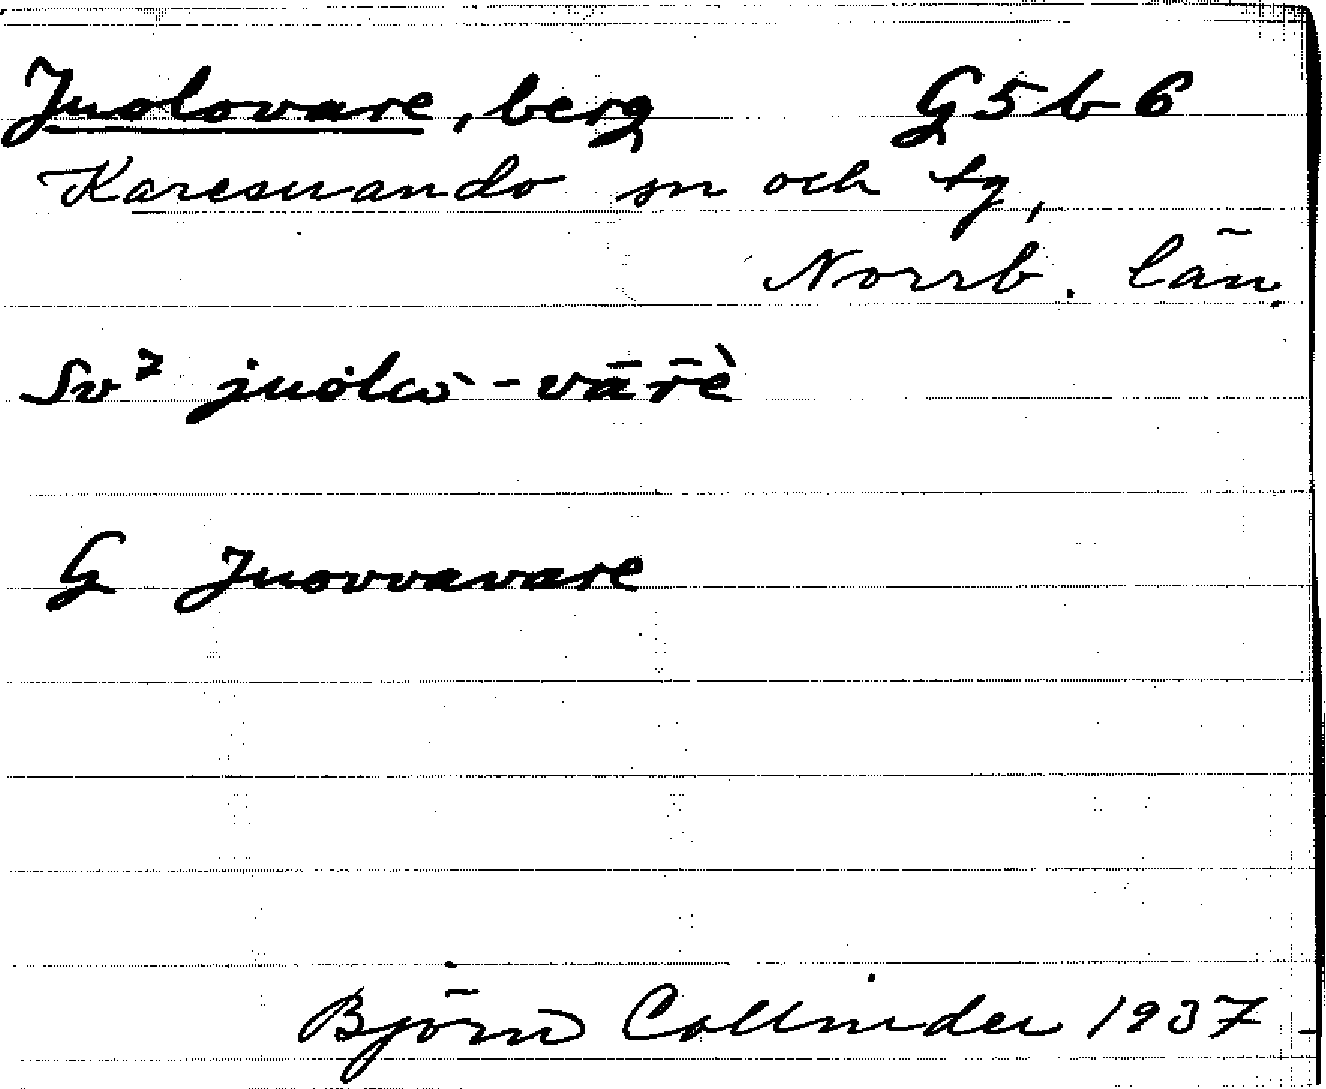 Juolovare, berg G5b6
Karesuando sn och tg,
Norrb. län.
Sv² juolὼ-vārḕ
G Juovvavare
Björn Collinder 1937